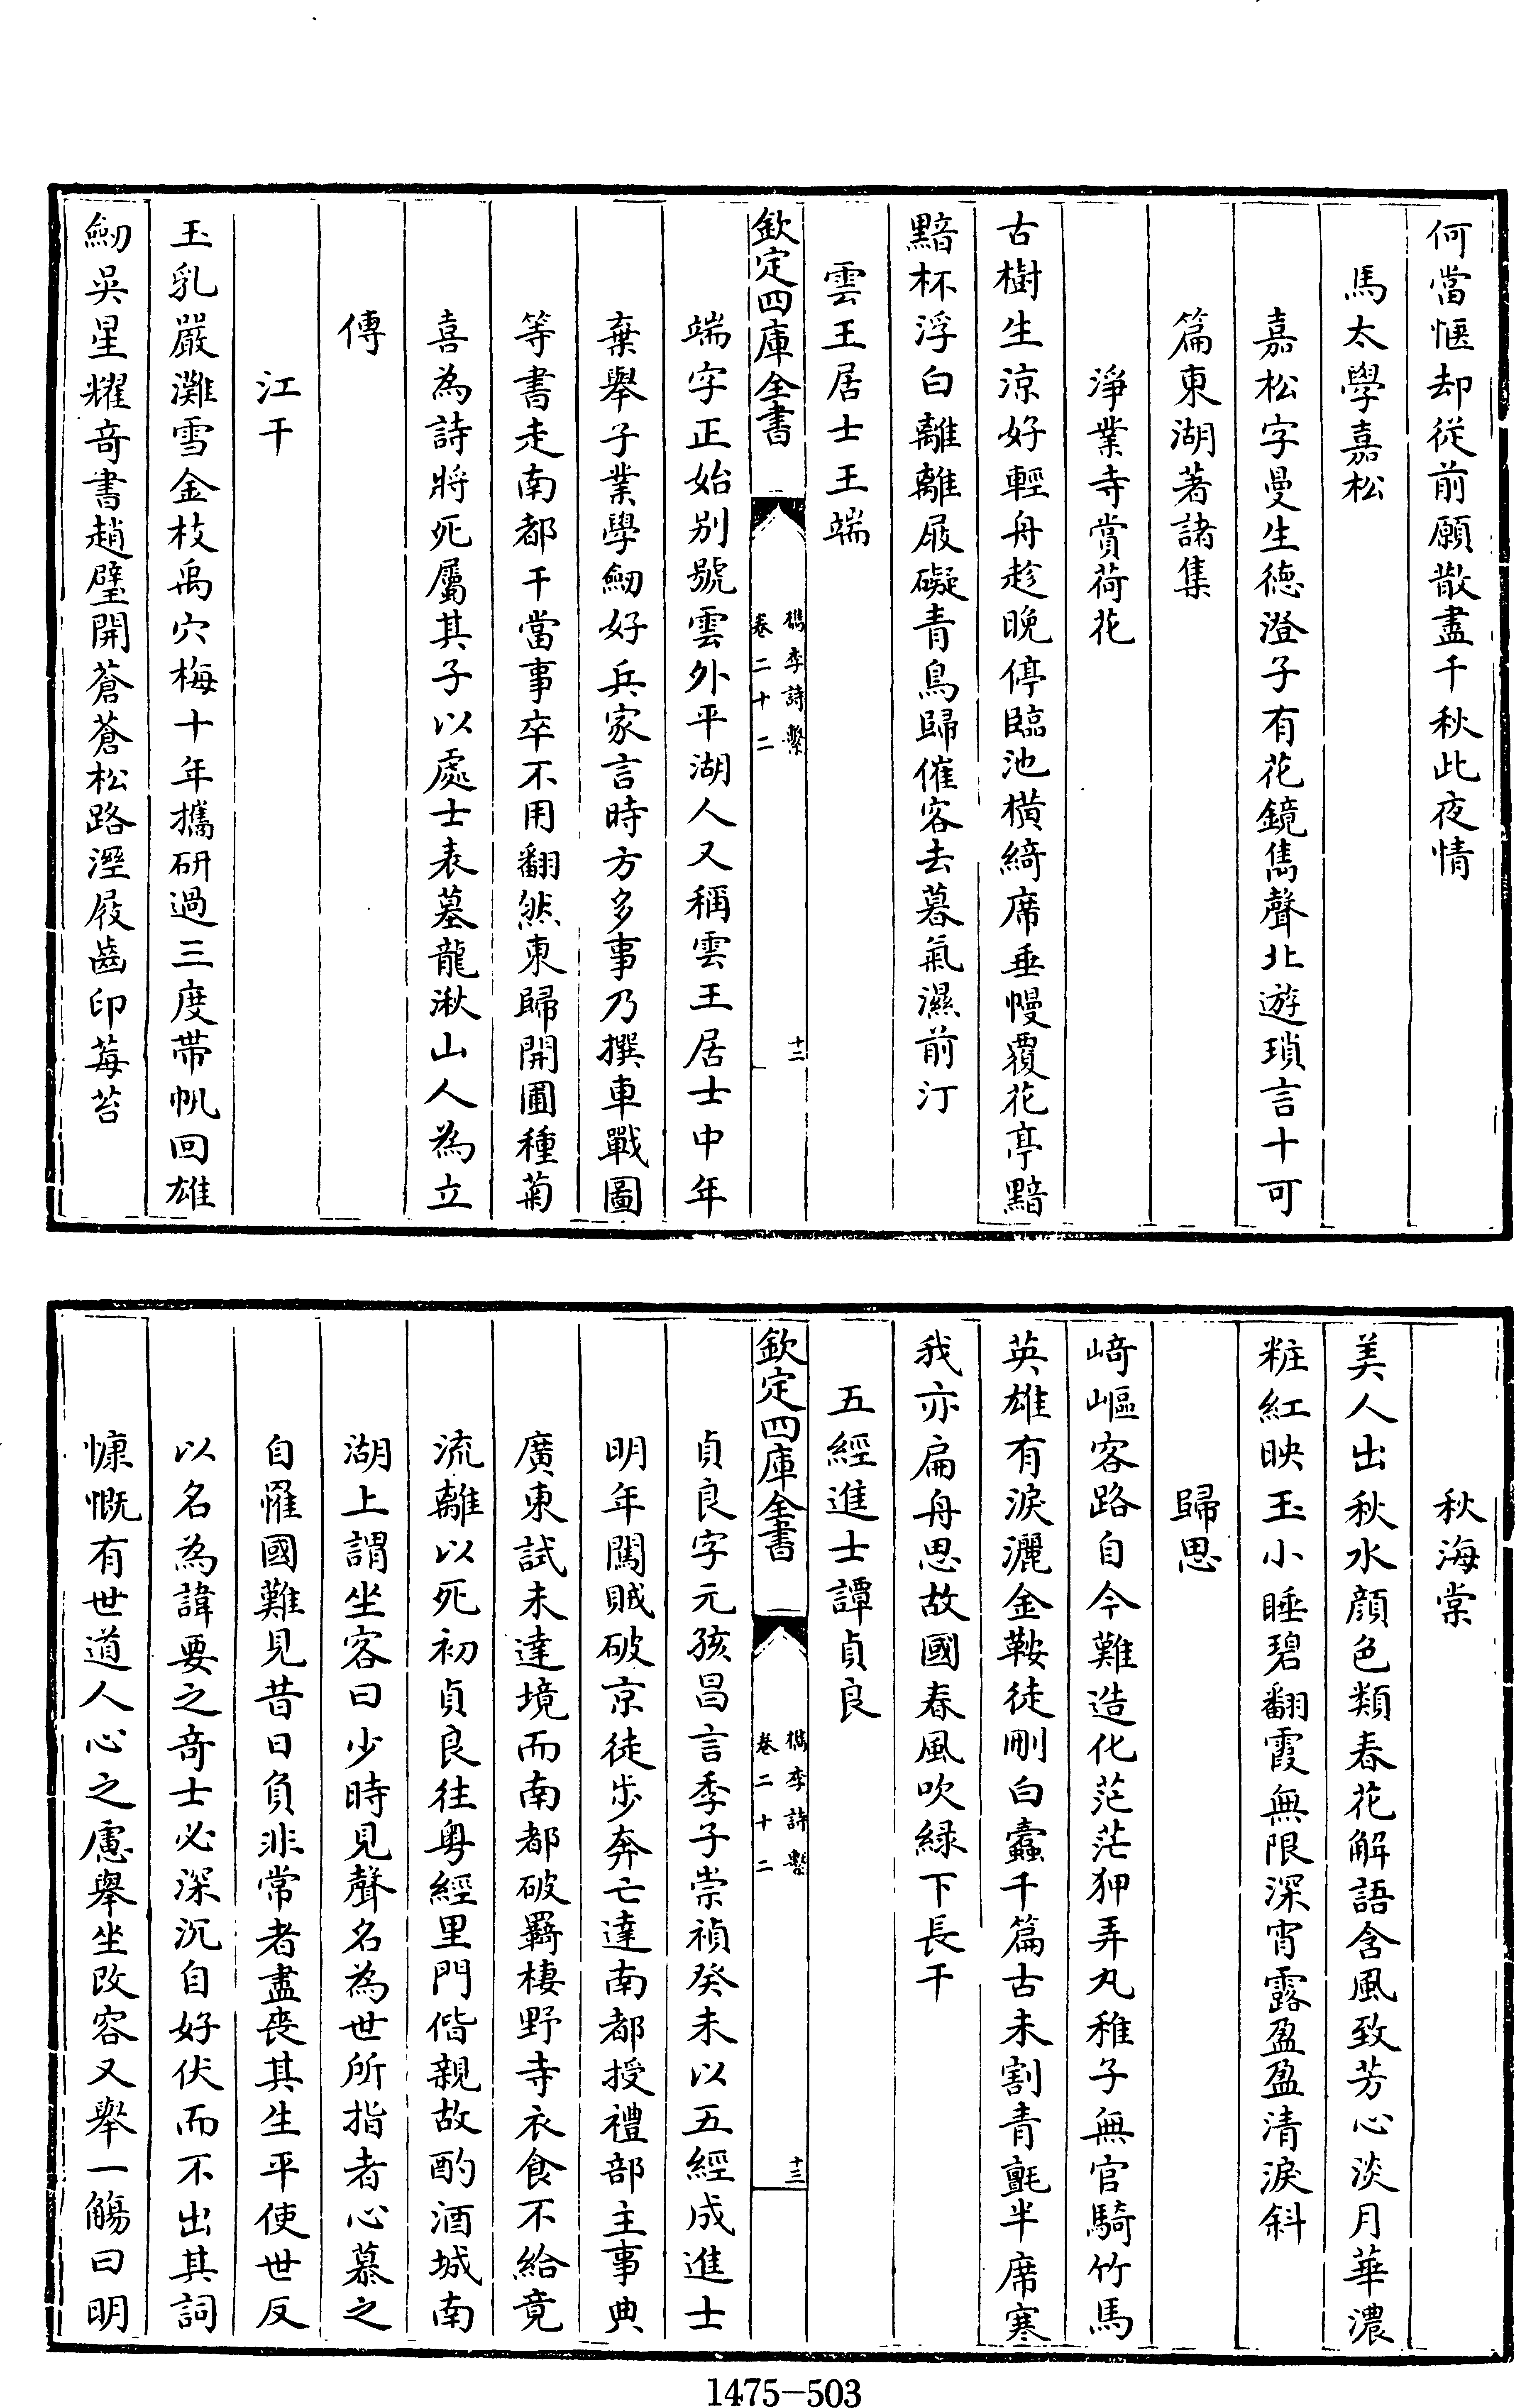 何當愜却從前願散盡千秋此夜情
馬太學嘉松
嘉松字曼生德澄子有花鏡雋聲北遊瑣言十可
篇東湖著諸集
淨業寺賞荷花
古樹生涼好輕舟趁晚停臨池橫綺席垂幔覆花亭黯
黯杯浮白離離屐礙青鳥歸催客去暮氣濕前汀
雲王居士王端
欽定四庫全書
檇李詩繫
卷二十二
十二
端字正始别號雲外平湖人又稱雲王居士中年
棄舉子業學劒好兵家言時方多事乃撰車戰圖
等書走南都干當事卒不用翻然東歸開圃種菊
喜為詩將死屬其子以處士表墓龍湫山人為立
傳
江干
玉乳嚴灘雪金枝禹穴梅十年攜研過三度帶帆回雄
劒吳星耀奇書趙璧開蒼蒼松路溼屐齒印莓苔
秋海棠
美人出秋水顔色類春花解語含風致芳心淡月華濃
粧紅映玉小睡碧翻霞無限深宵露盈盈清淚斜
歸思
﨑嶇客路自今難造化茫茫狎弄丸稚子無官騎竹馬
英雄有淚灑金鞍徒刪白蠹千篇古未割青氈半席寒
我亦扁舟思故國春風吹緑下長干
五經進士譚貞良
欽定四庫全書
檇李詩繫
卷二十二
十三
貞良字元孩昌言季子崇禎癸未以五經成進士
明年闖賊破京徒歩奔亡達南都授禮部主事典
廣東試未達境而南都破羇棲野寺衣食不給竟
流離以死初貞良往粤經里門偕親故酌酒城南
湖上謂坐客曰少時見聲名為世所指者心慕之
自罹國難見昔日負非常者盡喪其生平使世反
以名為諱要之奇士必深沉自好伏而不出其詞
慷慨有世道人心之慮舉坐改容又舉一觴曰明
1475-503